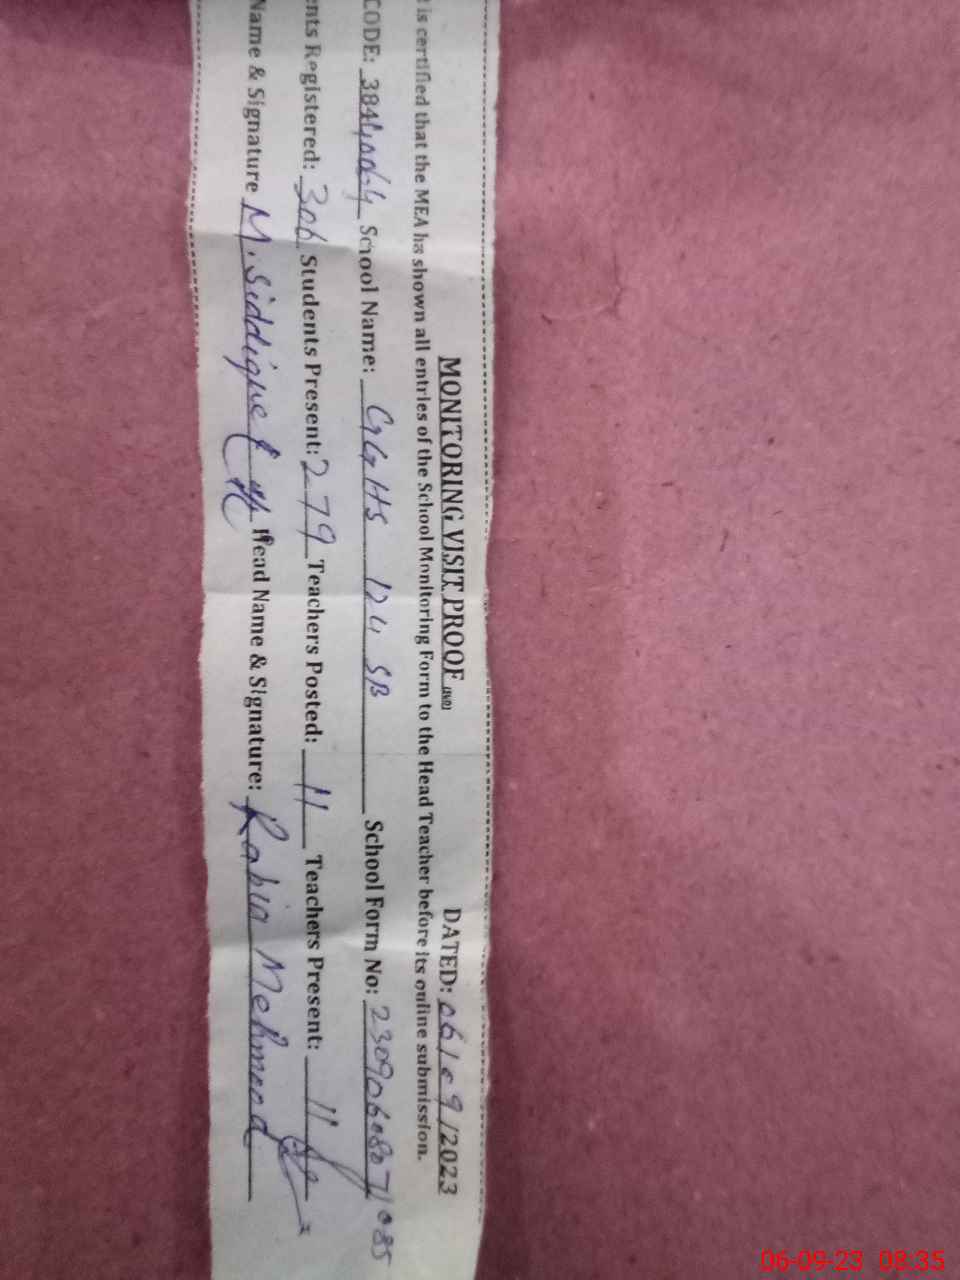 MONITORING VISIT PROOF DATED: 06/09/2023
is certified that the MEA has shown all entries of the School Monitoring Form to the Head Teacher before its online submission.
CODE: School Name: GGHS 124 SB School Form No:
ents Registered: 306 Students Present: 279 Teachers Posted: 11 Teachers Present: 11
Name & Signature M. Siddique Head Name & Signature: Rabia Mehmood
06-09-23 08:35